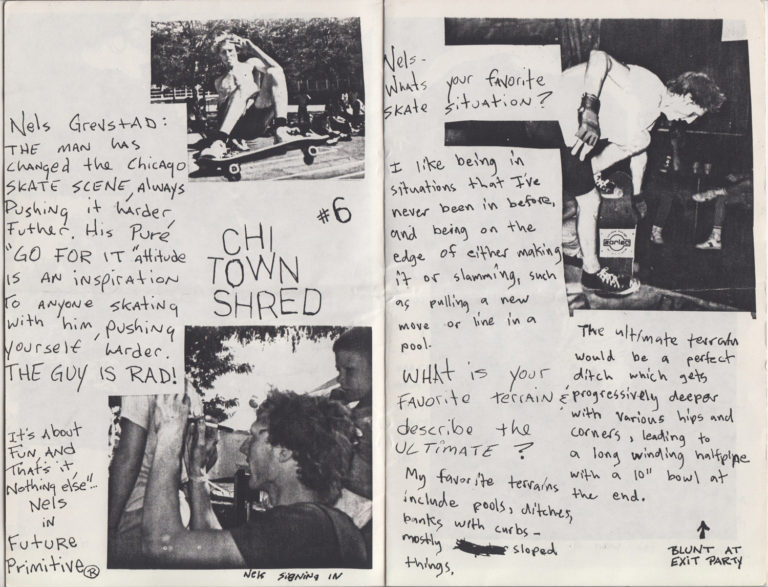 Nels Grevstad:
THE MAN HAS
changed the Chicago
SKATE SCENE, always
Pushing it harder,
Futher. His Pure
"GO FOR IT" attitude
is AN iNSPiRATiON
to anyone skating
with him, pushing
yourself harder.
THE GUY IS RAD!
It's about
Fun, AND
That's it,
Nothing else"...
Nels
in
Future
Primitive®
#6
CHI
TOWN
SHRED
Nels Signing in
Nels-
Whats your favorite
SKATE situation?
I like being in
situations that I've
never been in before,
and being on the
edge of either making
it or slamming, such
as pulling a new
move or line in a
pool.
WHAT is your
FAVORITE terrain &
describe the
ULTIMATE?
My favorite terrains
include pools, ditches,
banks with curbs-
mostly sloped
things.
The ultimate terrain
would be a perfect
ditch which gets
progressively deeper
with various hips and
corners, leading to
a long winding halfpipe
with a 10" bowl at
the end.
BLUNT AT
EXIT PARTY